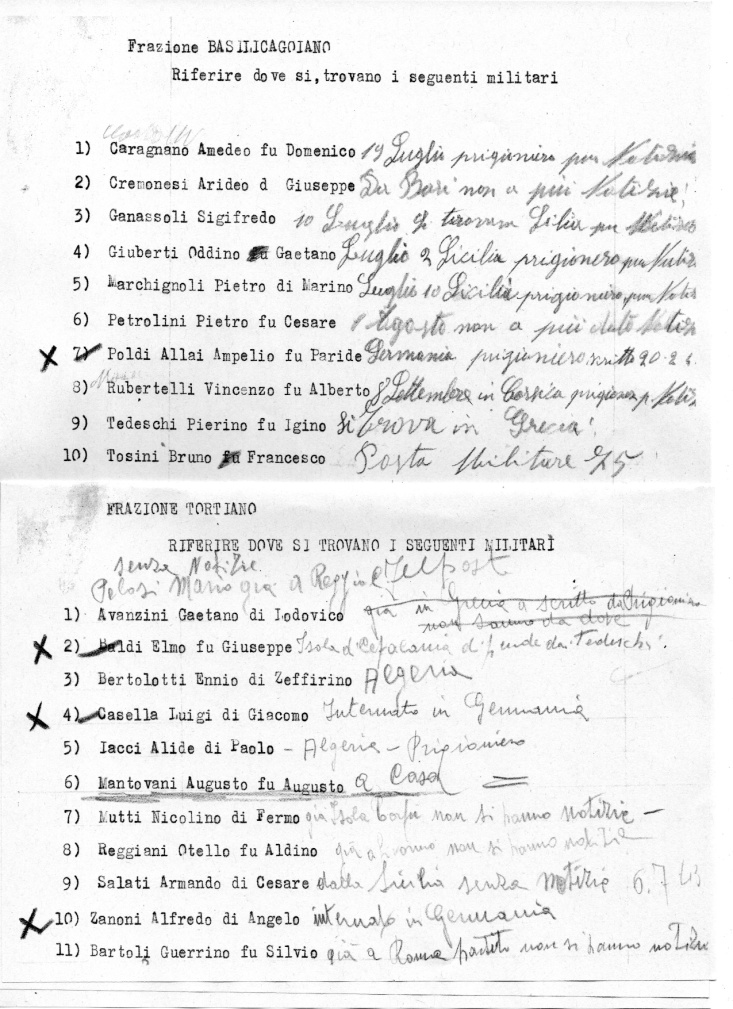 Frazione BASILICAGOIANO
Riferire dove si, trovano i seguenti militari
1) Caragnano Amedeo fu Domenico 19 Luglio prigioniero piu Notizie
2) Cremonesi Arideo d Giuseppe Da Bari non a più Notizie!
3) Ganassoli Sigifredo 10 Luglio si trovava
4) Giuberti Oddino fu Gaetano Luglio 2 Sicilia prigionero
5) Marchignoli Pietro di Marino Luglio 10 Sicilia prigioniero
6) Petrolini Pietro fu Cesare 1 Agosto non a più dato Notizie
7) Poldi Allai Ampelio fu Paride Germania prigioniero scritto 20.2
8) Rubertelli Vincenzo fu Alberto 8 Settembre in Corsica
9) Tedeschi Pierino fu Igino si trova in Grecia!
10) Tosini Bruno fu Francesco Posta Militare 75
FRAZIONE TORTIANO
RIFERIRE DOVE SI TROVANO I SEGUENTI MILITARI
senza Notizie
Pelosi Mario già a Reggio E.
1) Avanzini Gaetano di Lodovico già in Grecia a scritto da Prigioniero
non sanno da dove
2) Baldi Elmo fu Giuseppe Isola di Cefalonia dipende dai Tedeschi.
3) Bertolotti Ennio di Zeffirino Algeria
4) Casella Luigi di Giacomo Internato in Germania
5) Iacci Alide di Paolo - Algeria - Prigioniero
6) Mantovani Augusto fu Augusto a Casa
7) Mutti Nicolino di Fermo già Isola Corfu non si hanno notizie -
8) Reggiani Otello fu Aldino già a Livorno non si hanno notizie
9) Salati Armando di Cesare dalla Sicilia senza Notizie 6.7.43
10) Zanoni Alfredo di Angelo internato in Germania
11) Bartoli Guerrino fu Silvio già a Roma partito non si hanno notizie